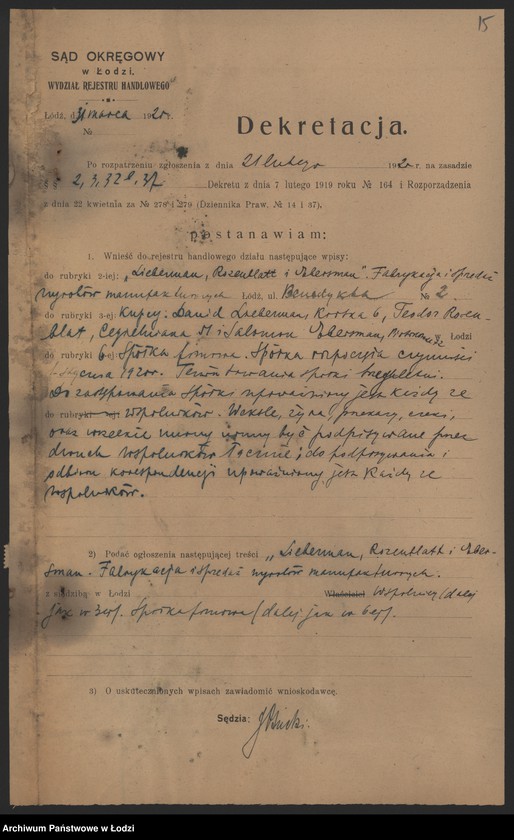 15
SĄD OKRĘGOWY
w Łodzi.
WYDZIAŁ REJESTRU HANDLOWEGO
Łódź, d. 31 marca 1920 r.
№
Dekretacja.
Po rozpatrzeniu zgłoszenia z dnia 21 lutego 1920 r. na zasadzie
2, 3, 32 Dekretu z dnia 7 lutego 1919 roku № 164 i Rozporządzenia
z dnia 22 kwietnia za № 278 i 279 (Dziennika Praw. № 14 i 37),
postanawiam:
1. Wnieść do rejestru handlowego działu następujące wpisy:
do rubryki 2-iej: „Lieberman, Rozenblatt i Ebersman". Fabrykacja i sprzedaż
wyrobów manufakturowych Łódź, ul. Benedykta № 2
do rubryki 3-ej Kupcy: Dawid Lieberman, 6, Teodor Rozen-
blat, Cegielniana i Salomon Ebersman, w Łodzi
do rubryki 6-ej Spółka firmowa. Spółka rozpoczęła czynności
stycznia 1920 r. trwania spółki
Do zastępowania Spółki upoważniony jest każdy ze
do rubryki -ej: wspólników. Weksle, żyra, przekazy, czeki,
oraz wszelkie umowy winny być podpisywane przez
dwuch wspólników łącznie; do podpisywania i
odbioru korespondencji upoważniony jest każdy ze
wspólników.
2) Podać ogłoszenia następującej treści „Lieberman, Rozenblatt i Eber-
sman. Fabrykacja i sprzedaż wyrobów manufakturowych.
z siedzibą w Łodzi Właściciel Wspólnicy (dalej
jak w 3 ej). Spółka firmowa (dalej jak w 6 ej).
3) O uskutecznionych wpisach zawiadomić wnioskodawcę.
Sędzia:
Archiwum Państwowe w Łodzi